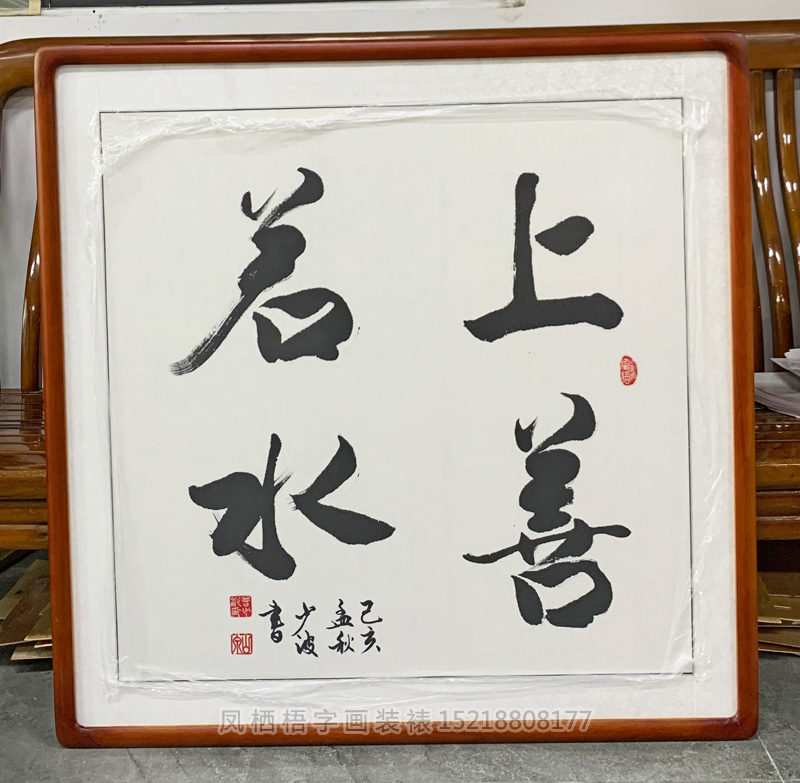 上善
若水
己亥
孟秋
少波
書
凤栖梧字画装裱15218808177